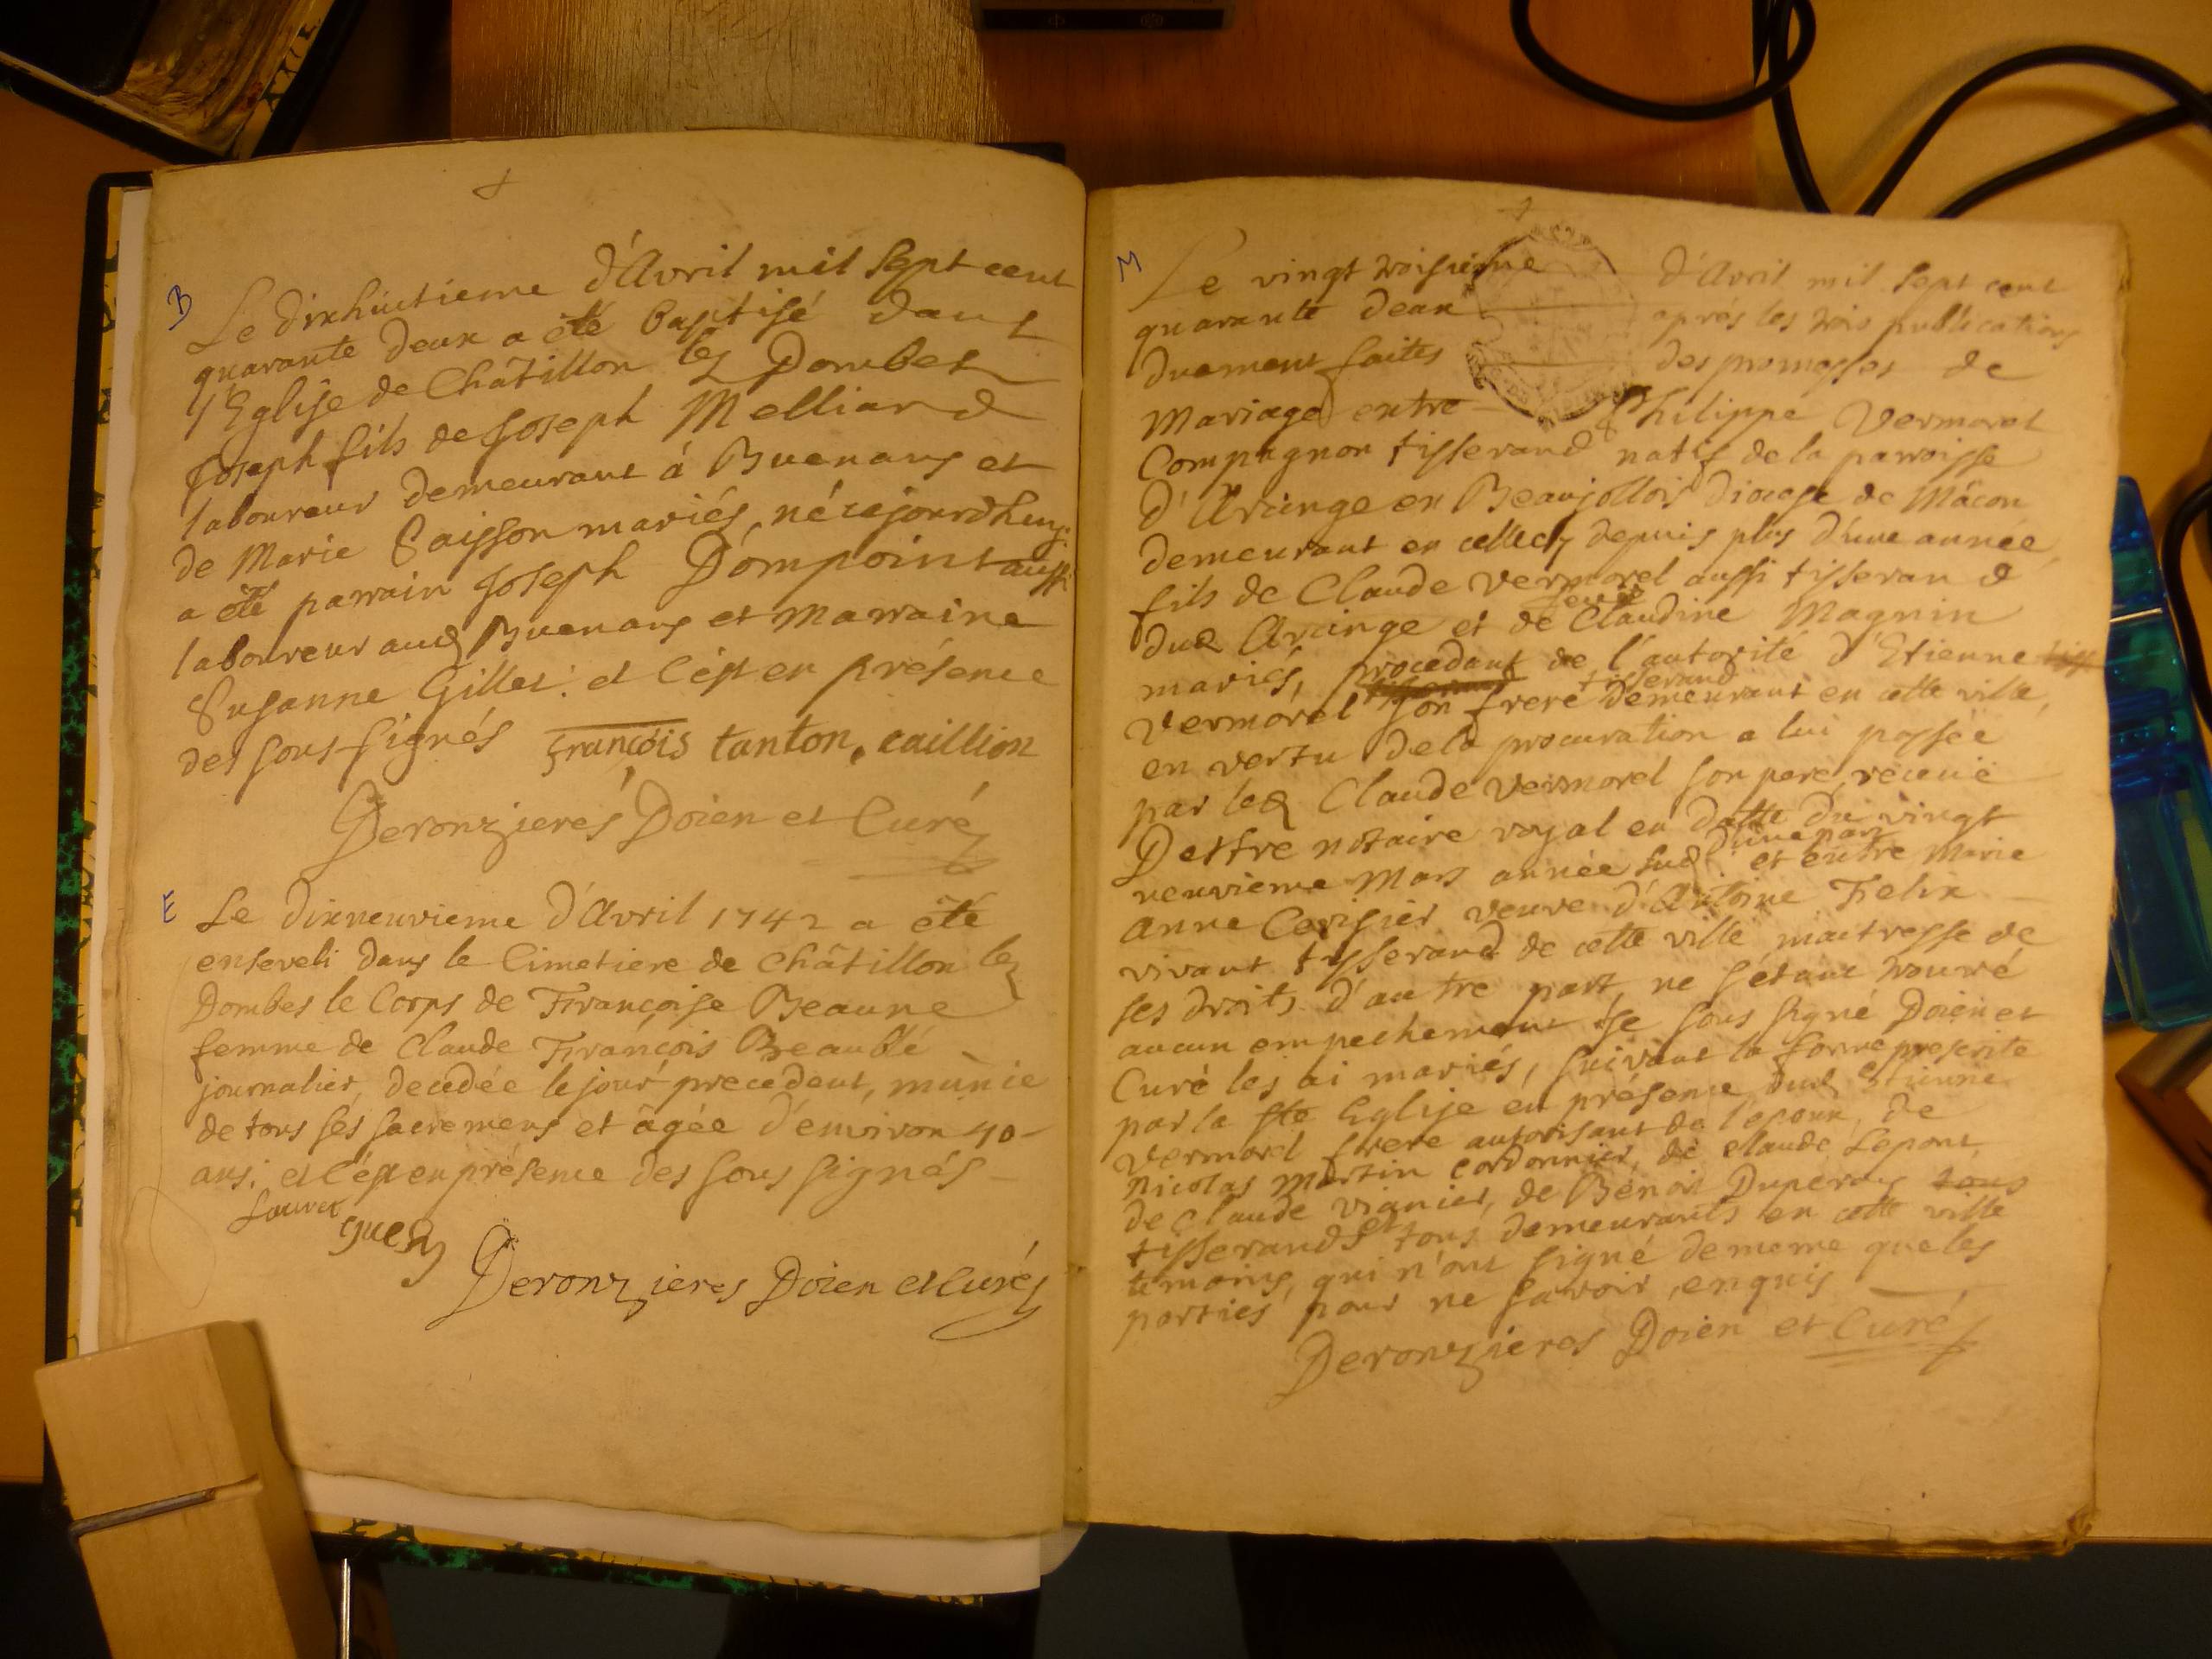 B
Le dixhuitieme d'Avril mil sept cent
quarante deux a été baptisé dans
l'Eglise de Châtillon les Dombes
Joseph fils de Joseph Melliard
laboureur demeurant à Buenans et
de Marie Saisson mariés, né cejourdhuy
a été parrain Joseph Dompoint aussi
laboureur aud Buenans et marraine
Susanne Gilles: et c'est en présence
des sous-signés françois tanton, caillion
Deronzieres Doien et Curé
E
Le dixneuvieme d'Avril 1742 a été
enseveli dans le Cimetiere de Châtillon les
Dombes le Corps de Françoise Beaune
femme de Claude François Beaublé
journalier, decedée le jour precedent, munie
de tous ses sacremens et âgée d'environ 40
ans: et c'est en présence des sous signés
Deronzieres Doien et Curé
M
Le vingt troisieme d'Avril mil sept cent
quarante deux après les trois publications
duement faites des promesses de
Mariage entre Philippe Vermorel
Compagnon tisserand natif de la parroisse
d'Arcinge en Beaujollois Diocese de Mâcon
demeurant en cette ville depuis plus d'une année,
fils de Claude Vermorel aussi tisserand
dud Arcinge et de feüe Claudine Magnin
mariés, procedant de l'autorité d'Etienne
Vermorel son frere tisserand demeurant en cette ville,
en vertu de la procuration a lui passée
par led Claude Vermorel son pere, receuë
Destre notaire royal en datte du vingt
neuvieme Mars année susd d'une part et entre Marie
Anne Cerisier veuve d'Antoine Felix
vivant tisserand de cette ville maitresse de
ses droits d'autre part, ne s'étant trouvé
aucun empechement Je sous signé Doien et
Curé les ai mariés, suivant la forme prescrite
par la Ste Eglise en présence dud Etienne
Vermorel frere autorisant de l'epoux, de
Nicolas Martin cordonnier, de Claude Lepont,
de Claude Vianier, de Benoit Duperay tous
tisserands et tous demeurants en cette ville
temoins, qui n'ont signé de meme que les
parties pour ne savoir, enquis
Deronzieres Doien et Curé